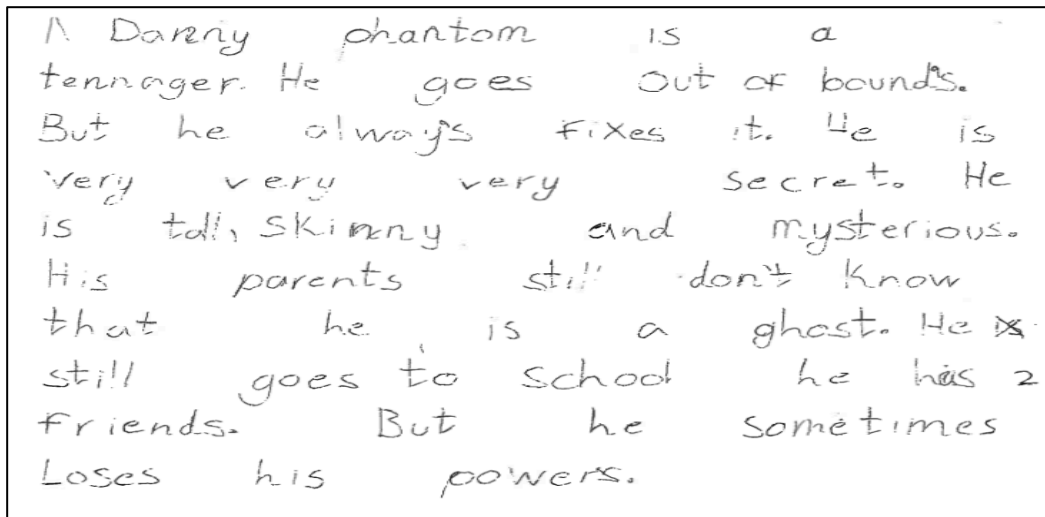 A Danny phantom is a
tennager. He goes out of bounds.
But he always fixes it. He is
very very very secret. He
is tall, skinny and mysterious.
His parents still don't know
that he is a ghost. He
still goes to school he has 2
friends. But he sometimes
Loses his powers.